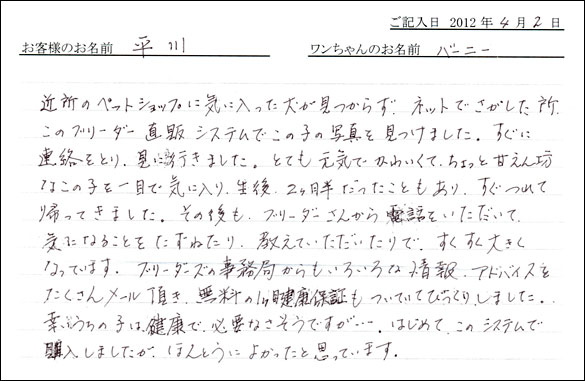 ご記入日 2012年4月2日
お客様のお名前 平川 ワンちゃんのお名前 バーニー
近所のペットショップに気に入った犬が見つからず、ネットでさがした所、
このブリーダー直販システムでこの子の写真を見つけました。すぐに
連絡をとり、見に行きました。とても元気でかわいくて、ちょっと甘えん坊
なこの子を一目で気に入り、生後、2ヶ月半だったこともあり、すぐつれて
帰ってきました。その後も、ブリーダーさんから電話をいただいて、
気になることをたずねたり、教えていただいたりで、すくすく大きく
なっています。ブリーダーズの事務局からもいろいろな情報、アドバイスを
たくさんメール頂き、無料の1ヶ月健康保証もついていてびっくりしました。
幸いうちの子は健康で、必要なさそうですが…。はじめて、このシステムで
購入しましたが、ほんとうによかったと思っています。